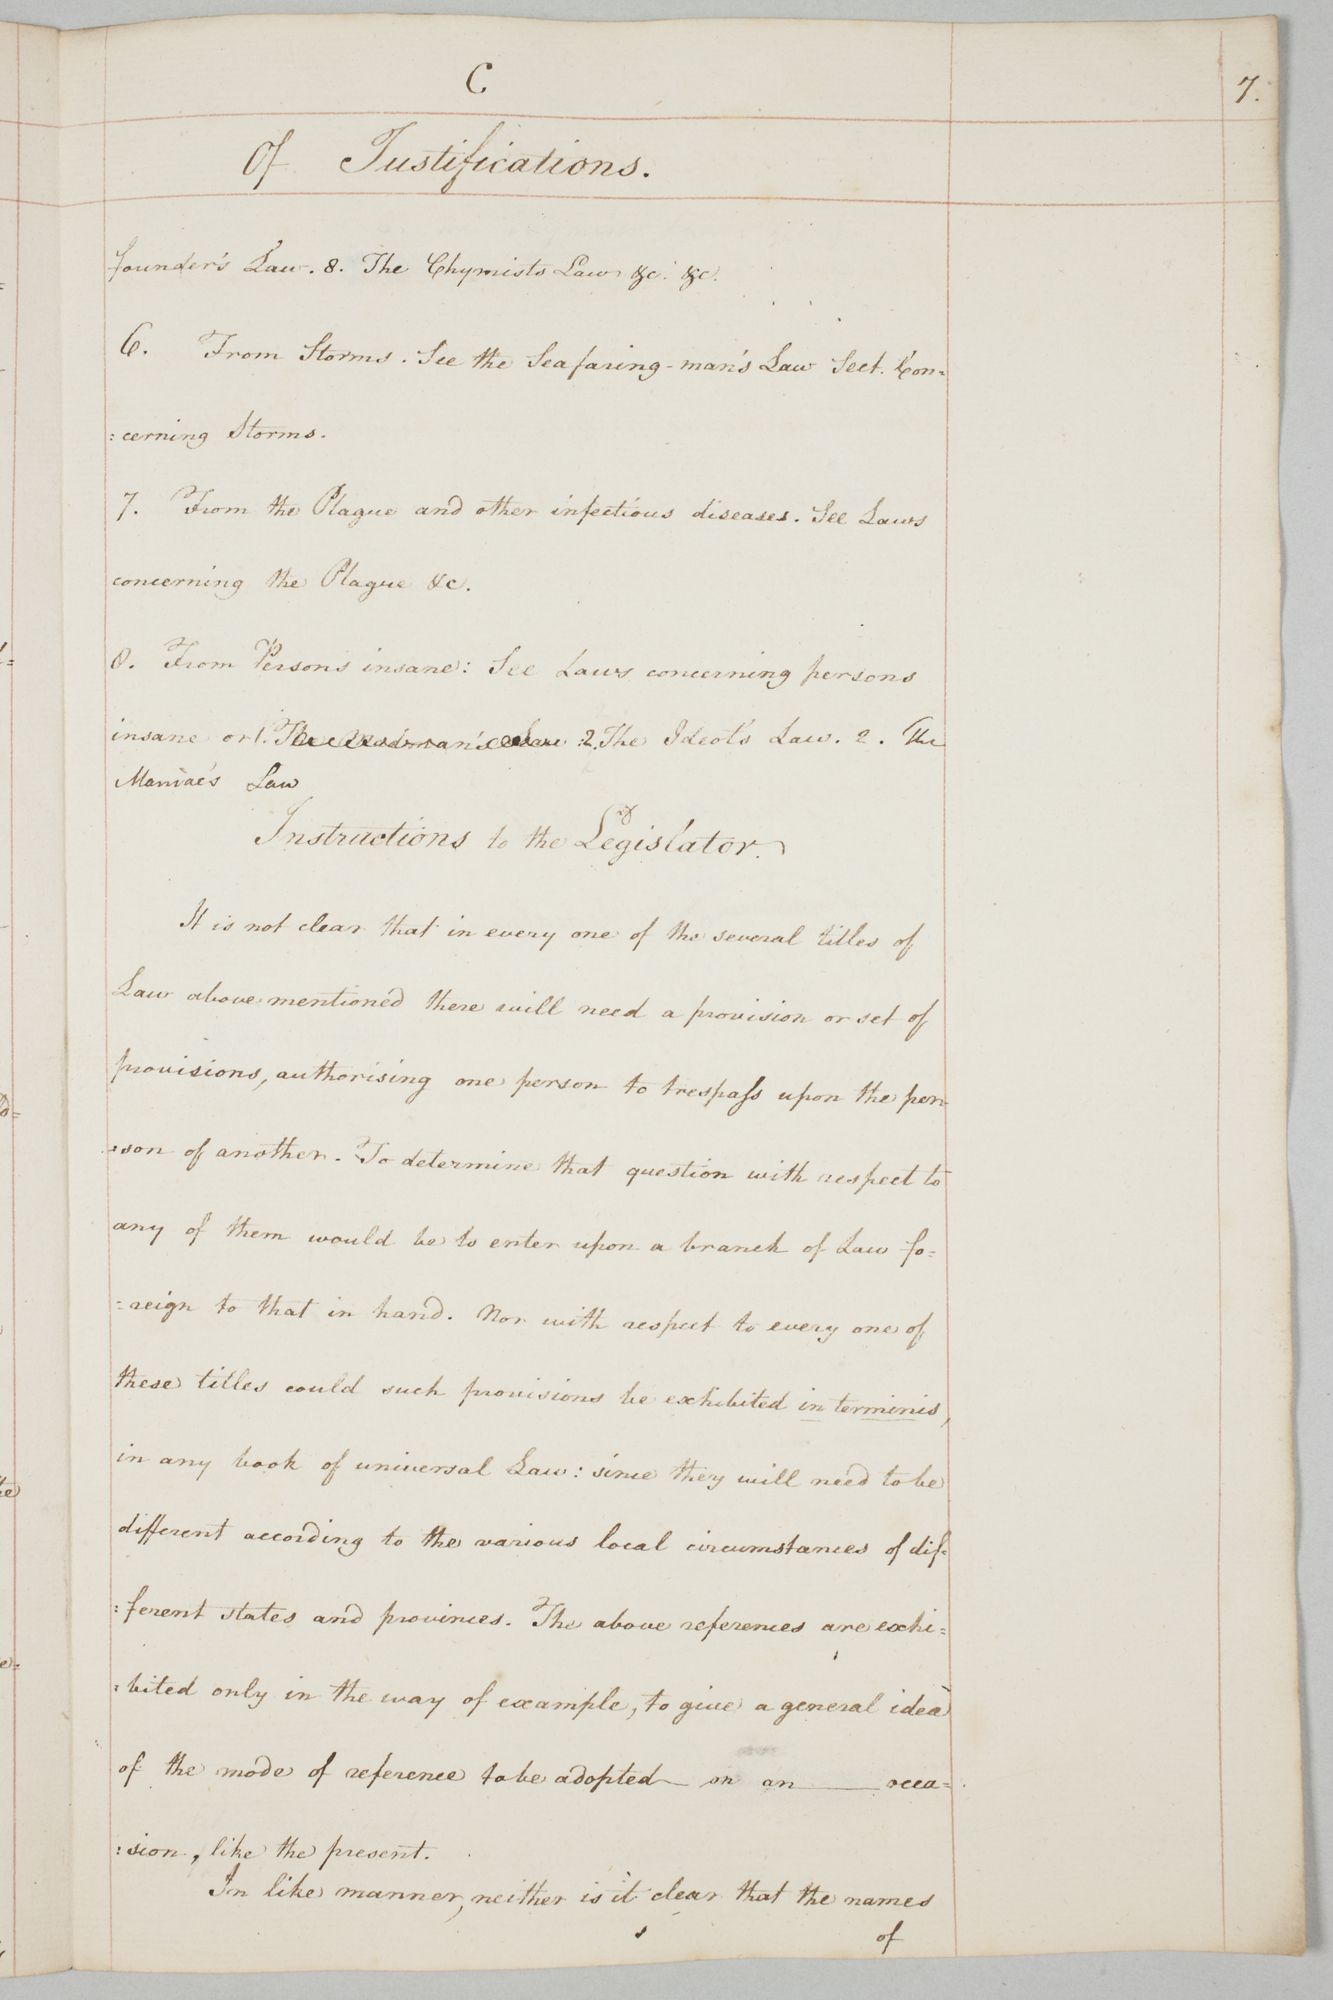 C
7.
Of Justifications.
founder's Law. 8. The Chymists Law &c. &c.
6. From Storms. See the Seafaring-man's Law Sect. Con=
:cerning Storms.
7. From the Plague and other infectious diseases. See Laws
concerning the Plague &c.
8. From Persons insane: See Laws concerning persons
insane or 1. The 2. The Ideot's Law. 2. The
Maniac's Law
Instructions to the Legislator.
It is not clear that in every one of the several titles of
Law above mentioned there will need a provision or set of
provisions, authorising one person to trespass upon the per
:son of another. To determine that question with respect to
any of them would be to enter upon a branch of Law fo=
:reign to that in hand. Nor with respect to every one of
these titles could such provisions be exhibited in terminis,
in any book of universal Law: since they will need to be
different according to the various local circumstances of dif=
:ferent states and provinces. The above references are exhi=
:bited only in the way of example, to give a general idea
of the mode of reference to be adopted on an occa=
:sion, like the present.
In like manner, neither is it clear that the names
of